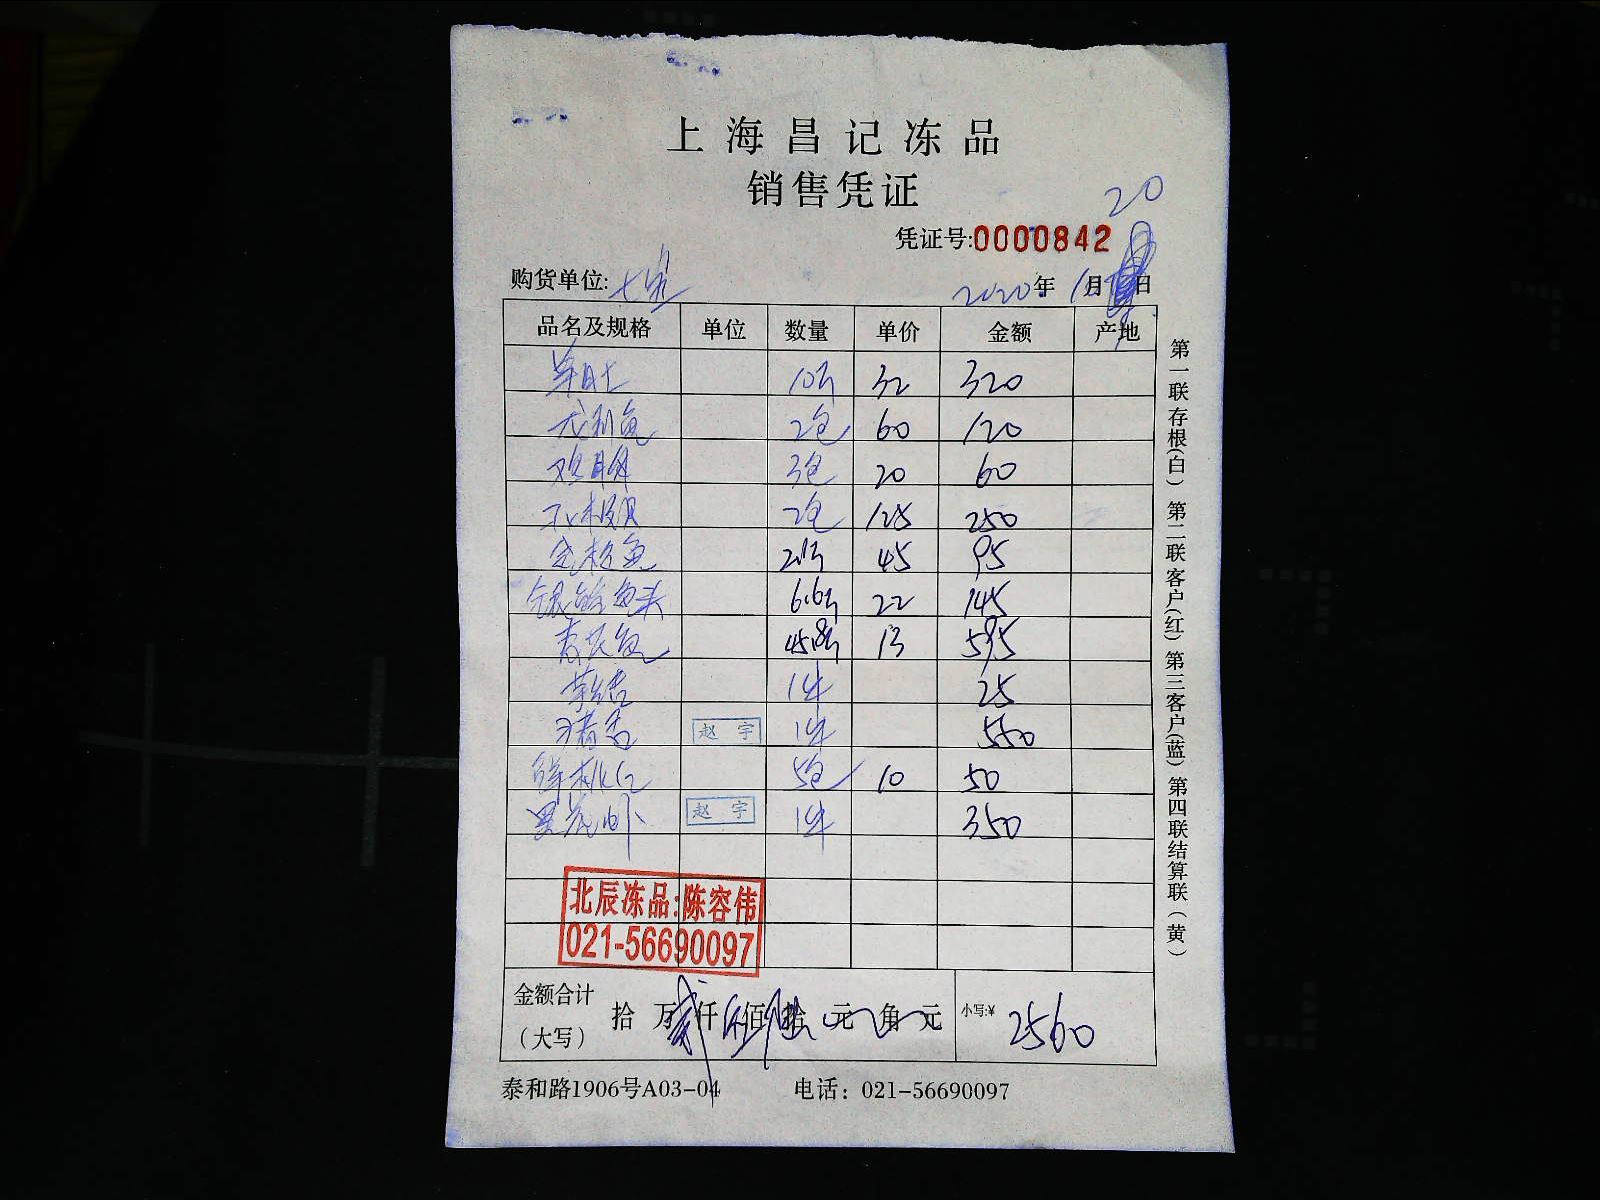 上海昌记冻品
销售凭证
20
凭证号:0000842
购货单位: 七宝 2020年 1月 日
品名及规格 单位 数量 单价 金额 产地
羊肚 10斤 32 320
龙利鱼 2包 60 120
鸡脯 3包 20 60
2包 125 250
金枪鱼 2.1斤 45 95
银鳕鱼头 6.6斤 22 145
青衣鱼 45.8斤 13 595
1件 25
猪舌 赵宇 1件 550
鲜桃仁 5包 10 50
黑虎虾 赵宇 1件 350
北辰冻品:陈容伟
021-56690097
金额合计
（大写） 拾 万 贰仟伍佰陆拾 元 角 元 小写:¥ 2560
泰和路1906号A03-04 电话：021-56690097
第一联存根(白) 第二联客户(红) 第三客户(蓝) 第四联结算联(黄)